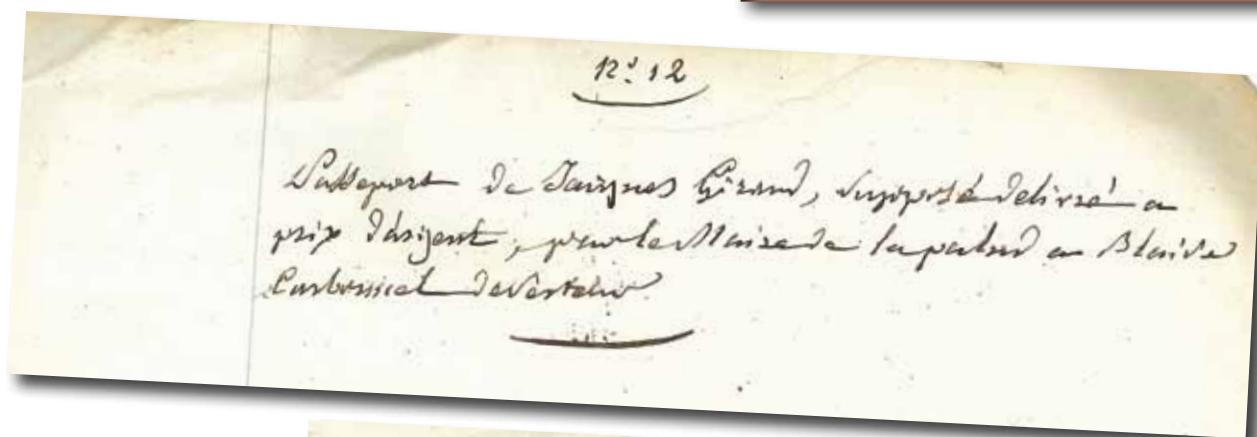 N.º 12
Passeport de Jacques Girard, supposé delivré a
prix d'argent, par le Maire de la palud a Blaise
Carbonnel